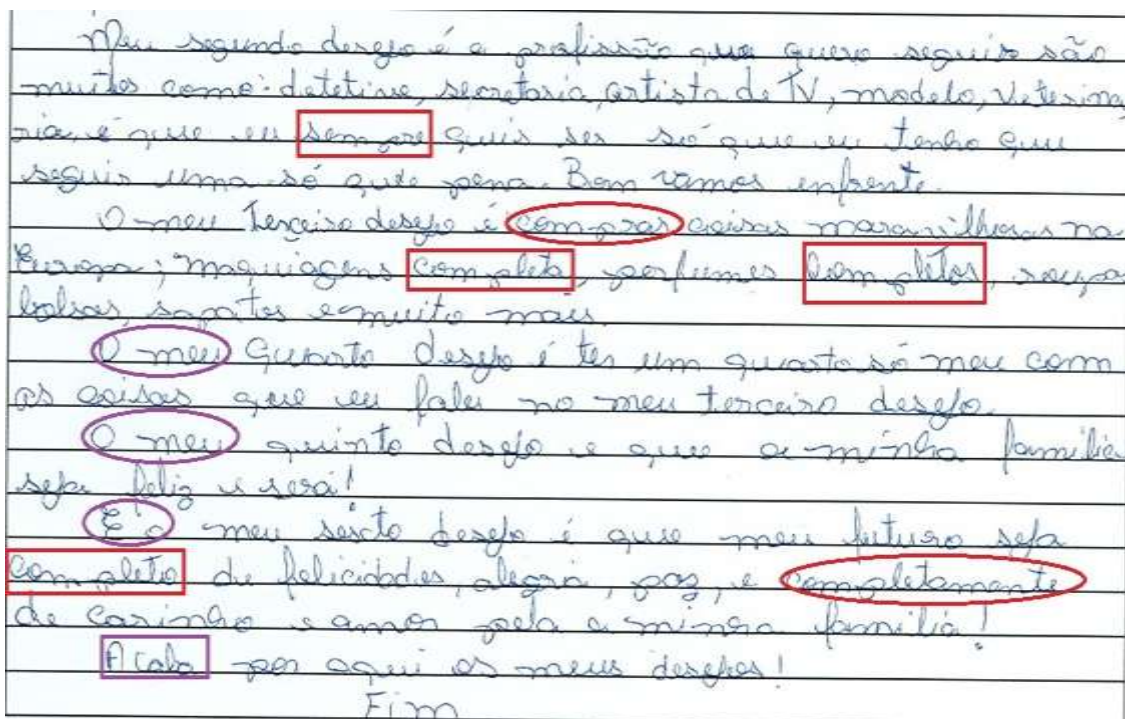 Meu segundo desejo é a profissão que quero seguir são
muitos como: detetive, secretaria, artista de TV, modelo, veterina
ria, é que eu sempre quis ser só que eu tenho que
seguir uma só que pena. Bom vamos enfrente.
O meu terceiro desejo é comprar coisas maravilhosas na
Europa; maquiagens completa, perfumes completos, roupa
bolsas, sapatos e muito mais.
O meu quarto desejo é ter um quarto só meu com
as coisas que eu falei no meu terceiro desejo.
O meu quinto desejo e que a minha familia
seja feliz e será!
E o meu sexto desejo é que meu futuro seja
completo de felicidades, alegria, paz, e completamente
de carinho e amor pela a minha familia!
Acaba por aqui os meus desejos!
Fim